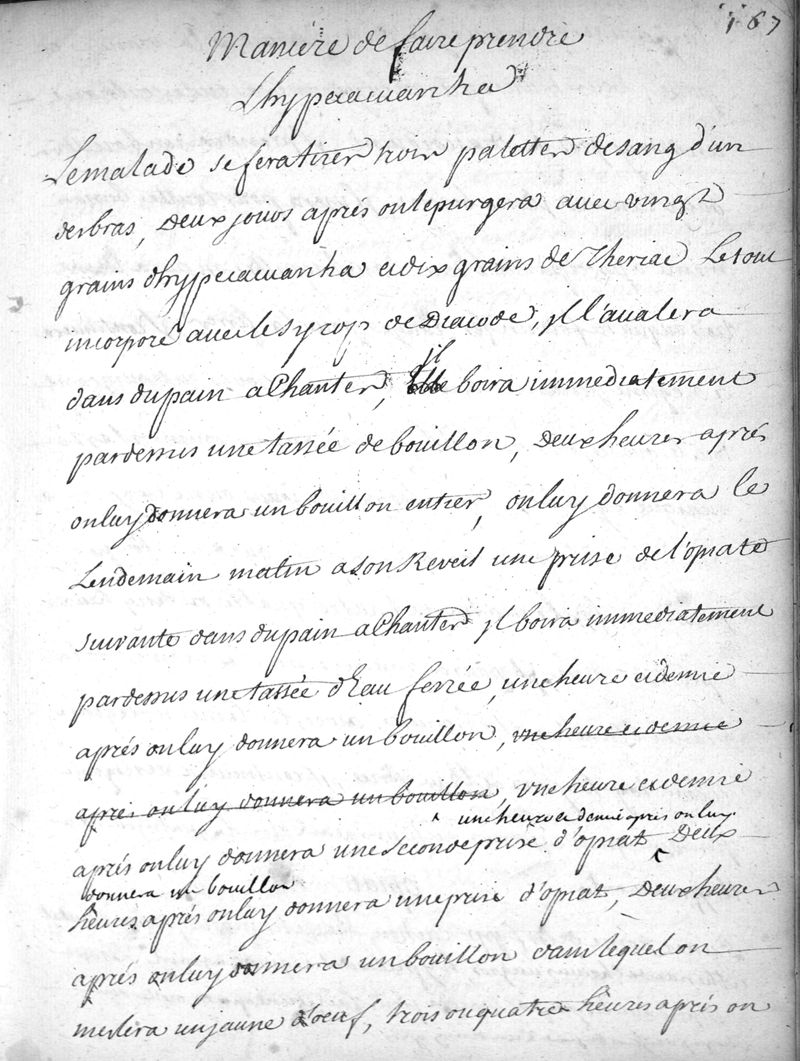 167
Maniere de faire prendre
Lhypecacuanha
Le malade se fera tirer trois palettes de sang d'un
des bras, Deux jours aprés on le purgera avec vingt
grains d'hypecacuanha et dix grains de Theriac Le tout
incorporé avec le syrop de Diacode, yl l'avalera
dans du pain a Chanter, il boira immediatement
par dessus une tassée de bouillon, Deux heures aprés
on luy donnera un bouillon entier, on luy donnera le
Lendemain matin a son Reveil une prise de l'opiate
suivante dans du pain a Chanter yl boira immediatement
par dessus une tassée d'Eau ferrée, une heure et demie
aprés on luy donnera un bouillon, une heure et demie
aprés on luy donnera un bouillon, une heure et demie
aprés on luy donnera une seconde prise d'opiat, une heure et demie aprés on luy
donnera un bouillon Deux
heures aprés on luy donnera une prise d'opiat, Deux heures
aprés on luy donnera un bouillon dans lequel on
meslera un jaune d'oeuf, trois ou quatre heures aprés on